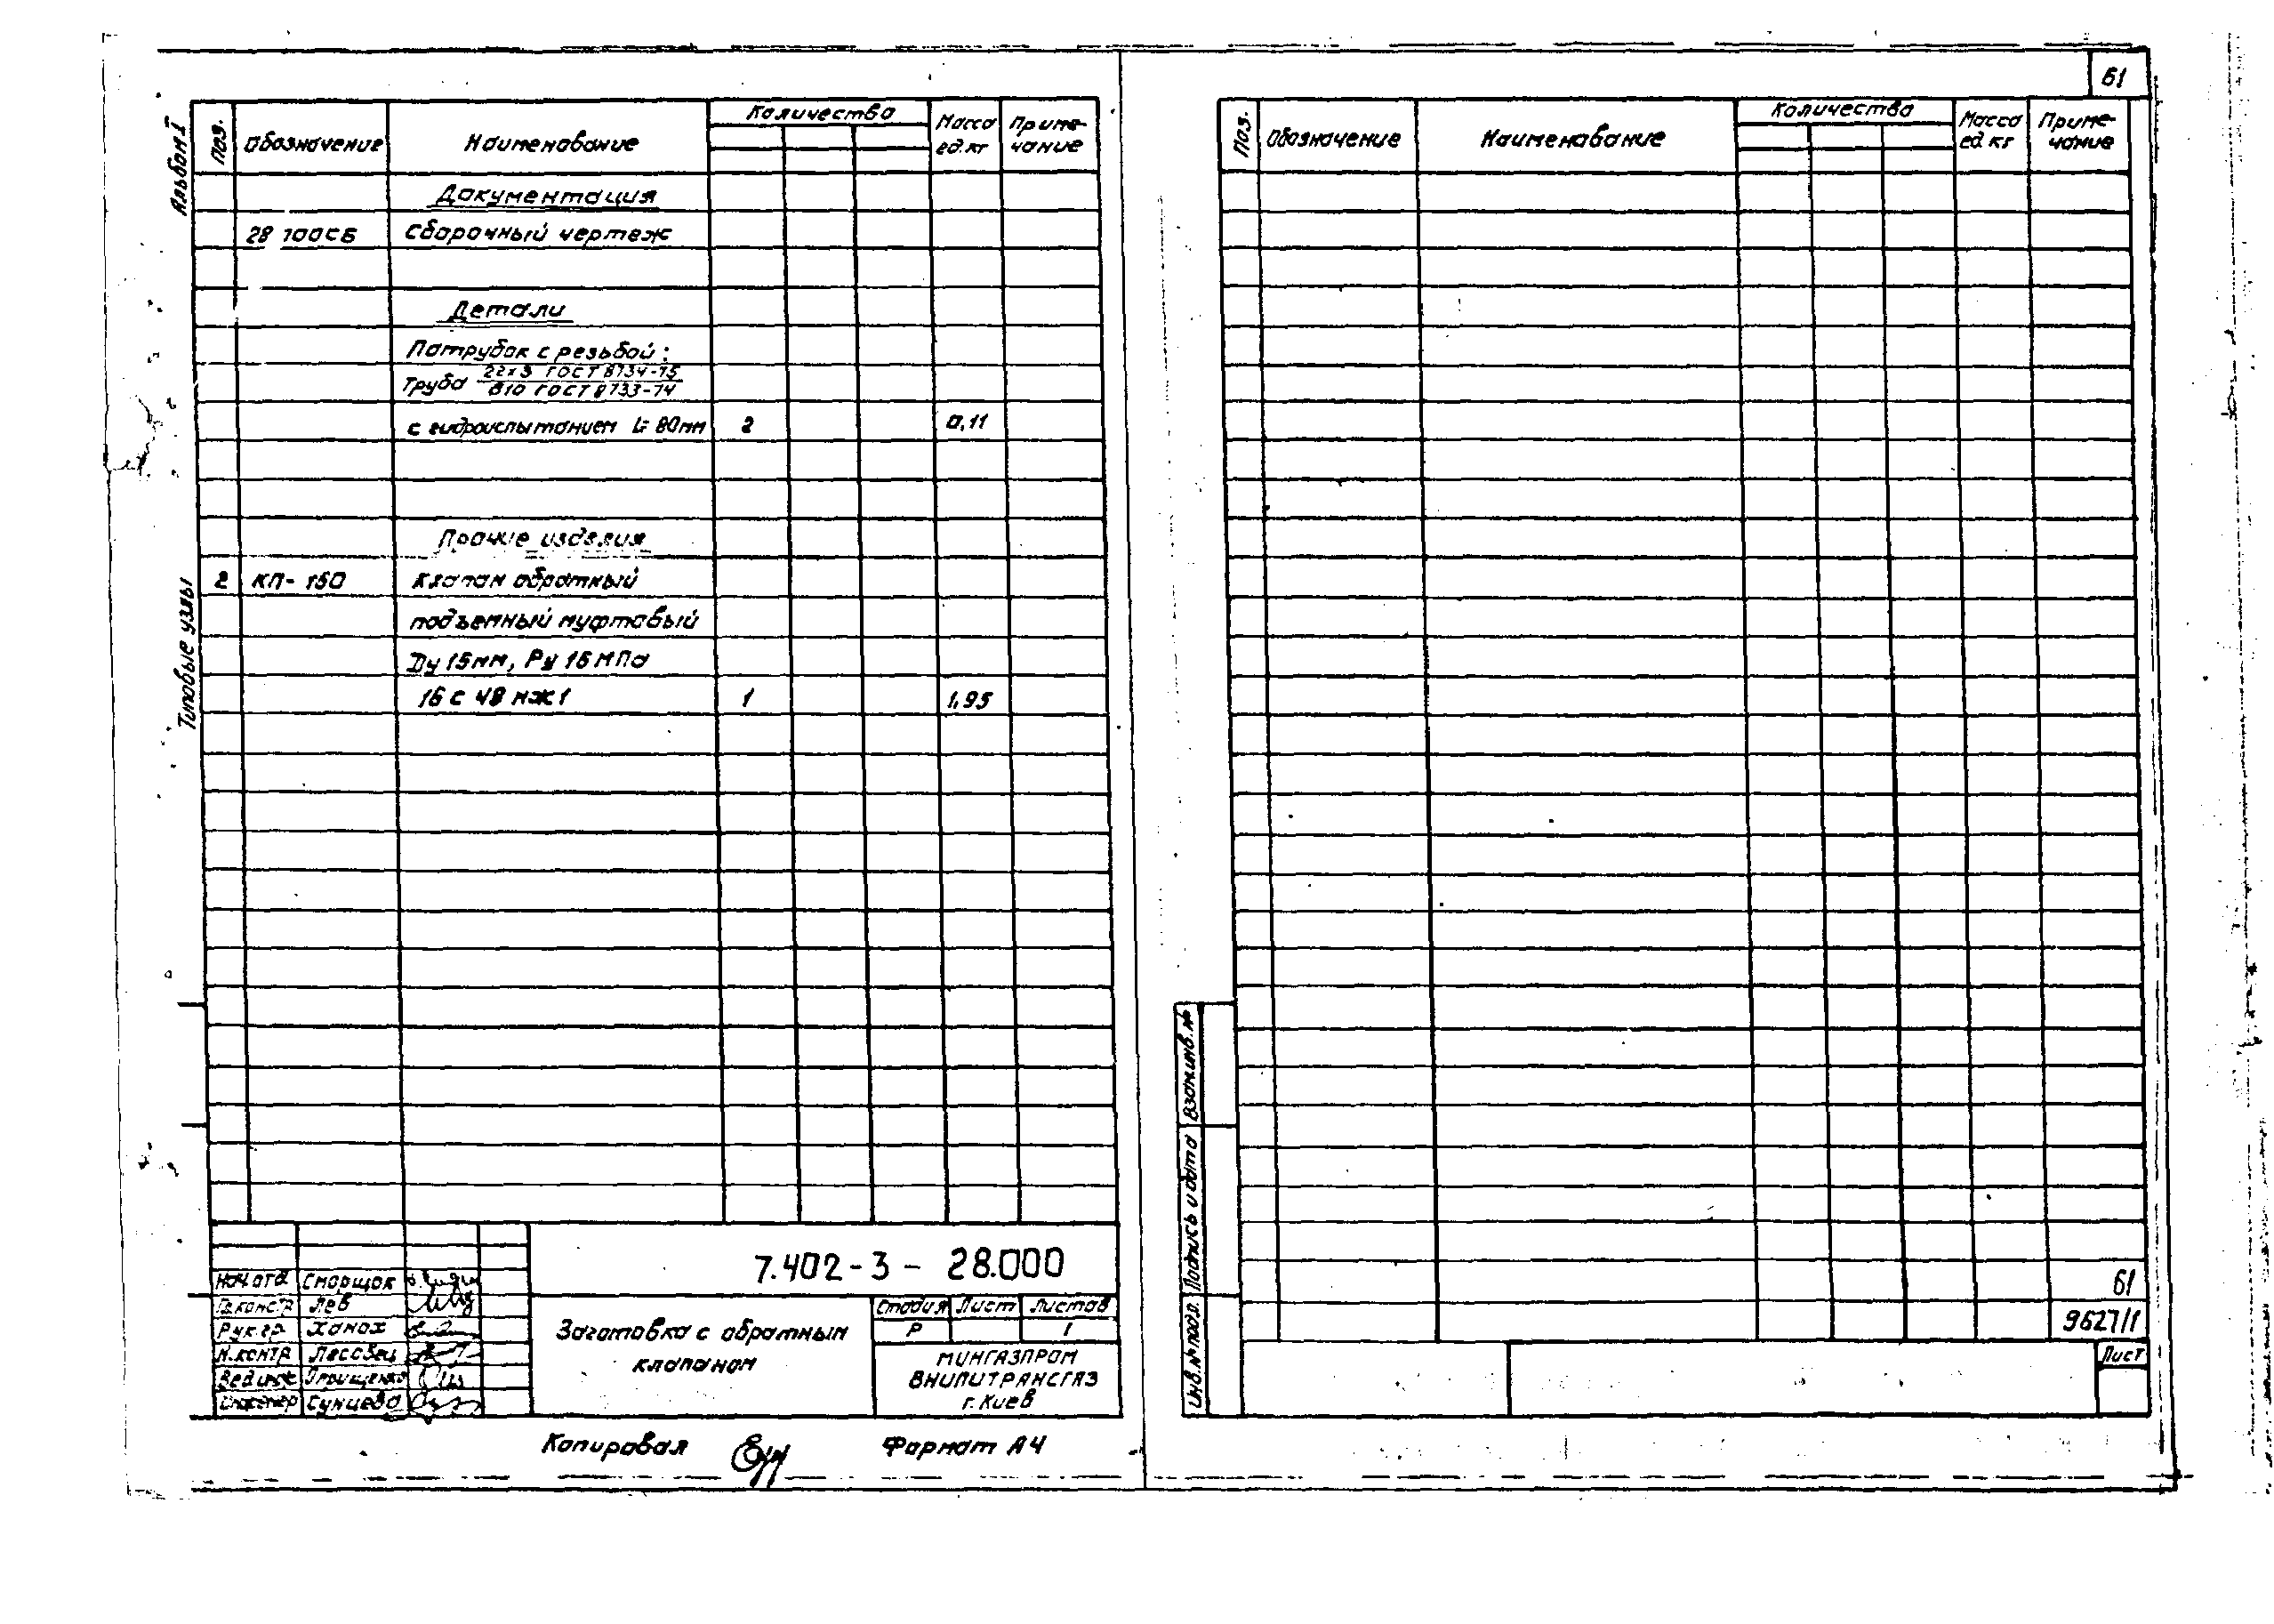 Альбом I
Типовые узлы
Поз.
Обозначение
Наименование
Количество
Масса ед.кг
Приме-
чание
Документация
28 100СБ Сборочный чертеж
Детали
Патрубок с резьбой:
Труба 22х3 ГОСТ 8734-75
В10 ГОСТ 8733-74
с гидроиспытанием L=80мм 2 0,11
Прочие изделия
2 КП-160 Клапан обратный
подъемный муфтовый
Dу 15мм, Pу 16МПа
16с 48 нж1 1 1,95
7.402-3- 28.000
Нач.отд Сморщок
Гл.констр Лев
Рук.гр. Ханох
Н.контр Лесовец
Вед.инж Онищенко
Инженер Сунцева
Заготовка с обратным
клапаном
Стадия Лист Листов
Р 1
МИНГАЗПРОМ
ВНИПИТРАНСГАЗ
г. Киев
Копировал
Формат А4
61
Поз.
Обозначение
Наименование
Количество
Масса
ед.кг
Приме-
чание
Взам.инв.№
Подпись и дата
Инв.№ подл.
61
9627/1
Лист